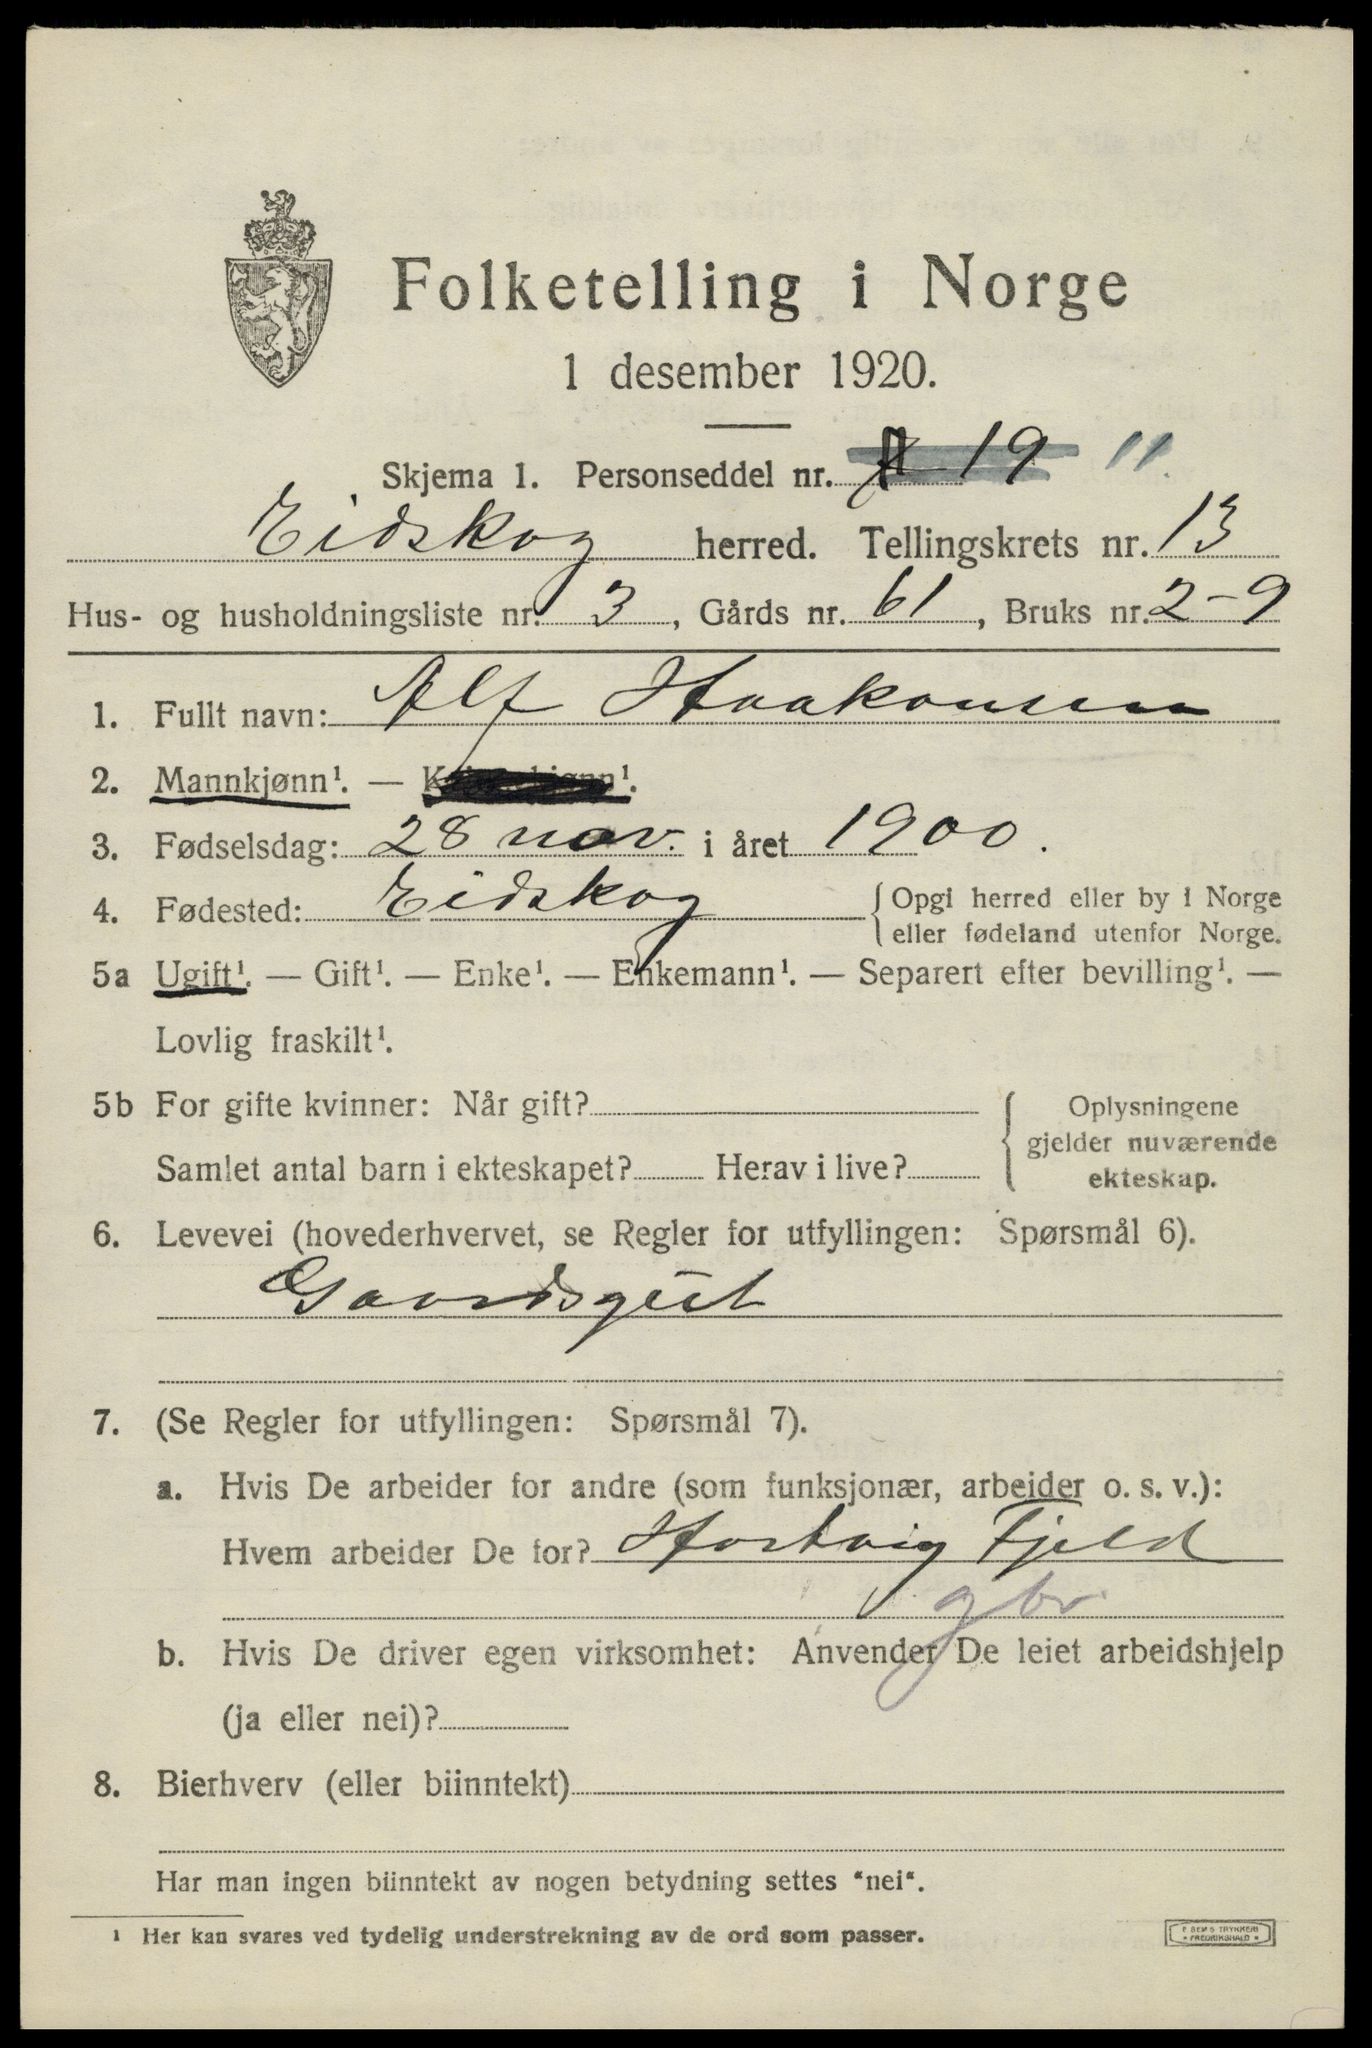 Folketelling i Norge
1 desember 1920.
Skjema 1. Personseddel nr. 19 11.
Eidskog herred. Tellingskrets nr. 13
Hus- og husholdningsliste nr. 3, Gårds nr. 61, Bruks nr. 2-9
1. Fullt navn: Alf Haakonsen
2. Mannkjønn¹. — Kvinnekjønn¹.
3. Fødselsdag: 28 nov. i året 1900.
4. Fødested: Eidskog {Opgi herred eller by i Norge
eller fødeland utenfor Norge.
5a Ugift¹. — Gift¹. — Enke¹. — Enkemann¹. — Separert efter bevilling¹. —
Lovlig fraskilt¹.
5b For gifte kvinner: Når gift? { Oplysningene
gjelder nuværende
Samlet antal barn i ekteskapet? Herav i live?
ekteskap.
6. Levevei (hovederhvervet, se Regler for utfyllingen: Spørsmål 6).
Gaardsgut
7. (Se Regler for utfyllingen: Spørsmål 7).
a. Hvis De arbeider for andre (som funksjonær, arbeider o. s. v.):
Hvem arbeider De for? Hartvig Fjeld
gbr.
b. Hvis De driver egen virksomhet: Anvender De leiet arbeidshjelp
(ja eller nei)?
8. Bierhverv (eller biinntekt)
Har man ingen biinntekt av nogen betydning settes "nei".
¹ Her kan svares ved tydelig understrekning av de ord som passer.
E SEM'S TRYKKERI
* FREDRIKSHALD *